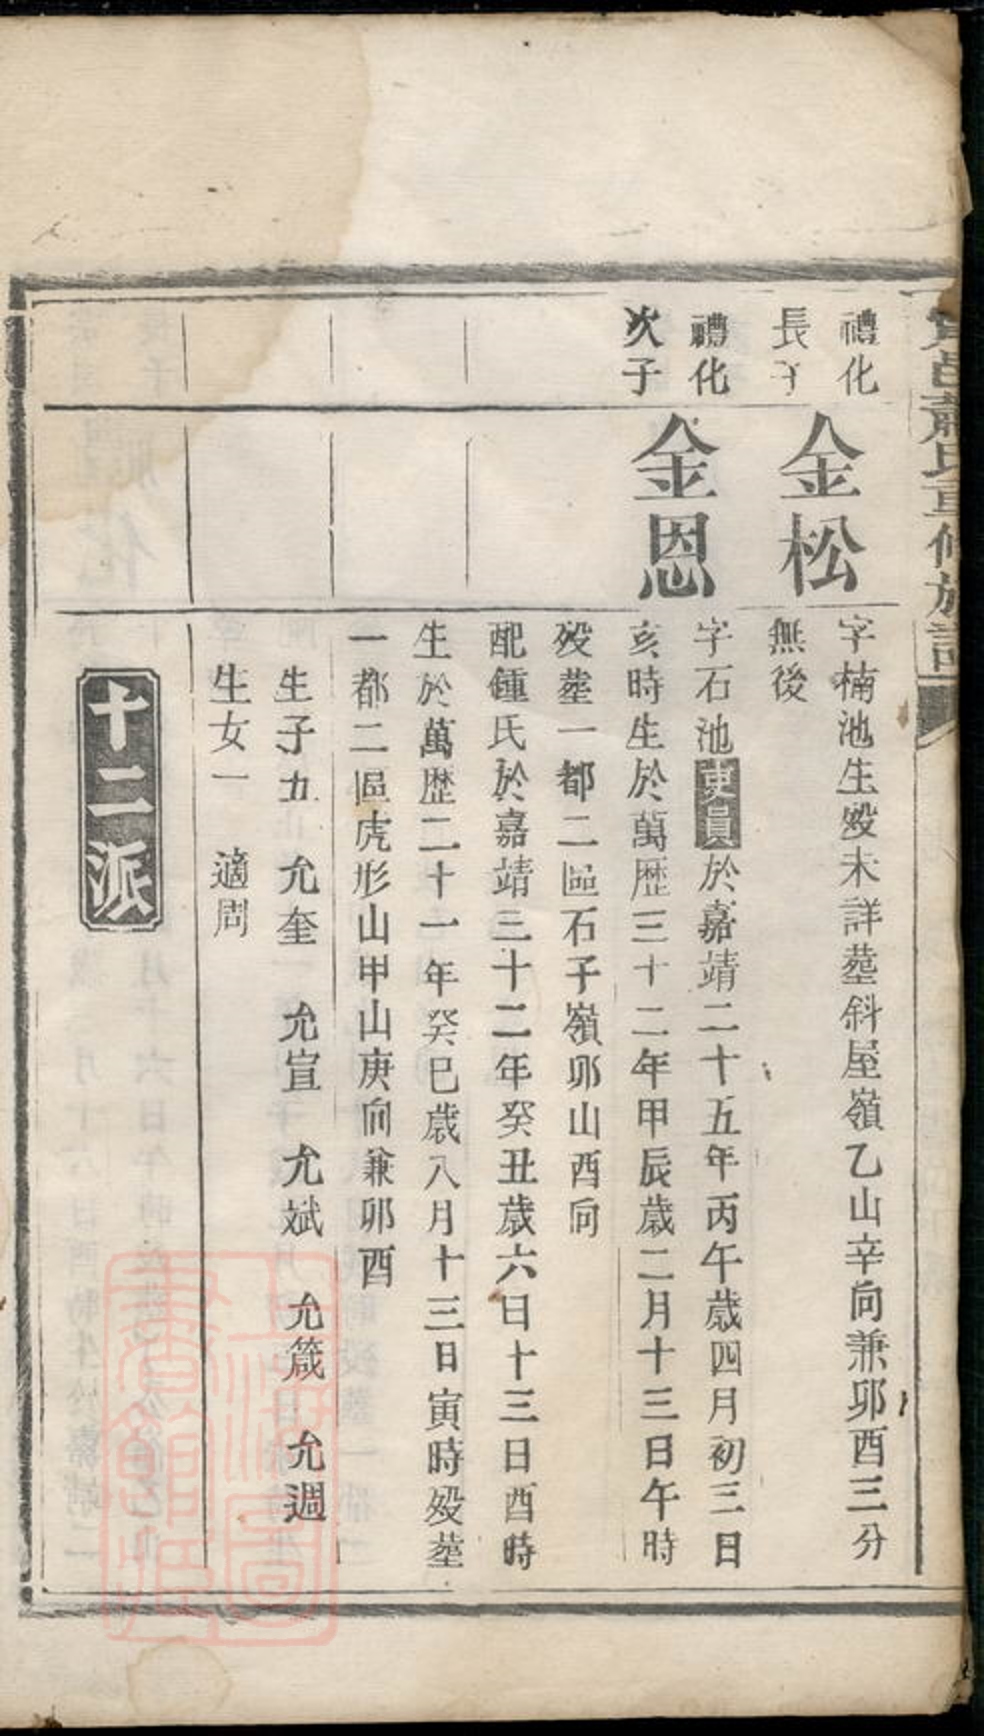 禮化
長子
金松
字楠池生殁未詳塟斜屋嶺乙山辛向兼卯酉三分
無後
禮化
次子
金恩
字石池吏員於嘉靖二十五年丙午歲四月初三日
亥時生於萬歷三十二年甲辰歲二月十三日午時
殁塟一都二區石子嶺卯山酉向
配鍾氏於嘉靖三十二年癸丑歲六日十三日酉時
生於萬歷二十一年癸巳歲八月十三日寅時殁塟
一都二區虎形山甲山庚向兼卯酉
生子五 允奎 允宣 允斌 允箴 允週
生女一 適周
十二派